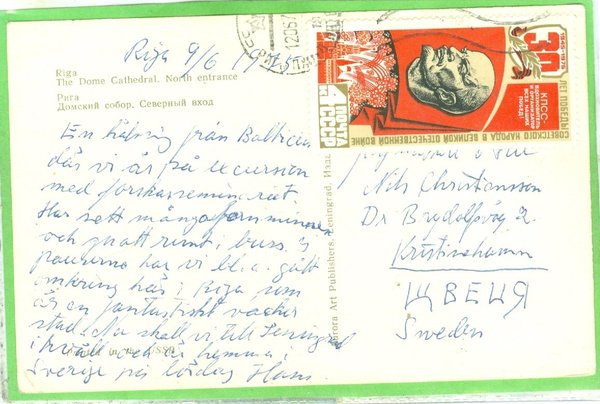 Riga 9/6 1975
Riga
The Dome Cathedral. North entrance
Рига
Домский собор. Северный вход
En hälsning från Baltikum
där vi är på excursion
med forskarseminariet.
Har sett många fornminnen
och åkt runt i buss. I
pauserna har vi bl.a. gått
omkring här i Riga som
är en fantastiskt vacker
stad. Nu skall vi till Leningrad
i kväll och är hemma i
Sverige på lördag Hans
Aurora Art Publishers. Leningrad. Изда
1945-1975
30
ЛЕТ ПОБЕДЫ
СОВЕТСКОГО НАРОДА В ВЕЛИКОЙ ОТЕЧЕСТВЕННОЙ ВОЙНЕ
КПСС-
ВДОХНОВИТЕЛЬ
И ОРГАНИЗАТОР
ВСЕХ НАШИХ
ПОБЕД!
4 ПОЧТА
СССР
Nils Christiansson
Dr Bradalsväg 2
Kristinehamn
ЩВЕЦЯ
Sweden